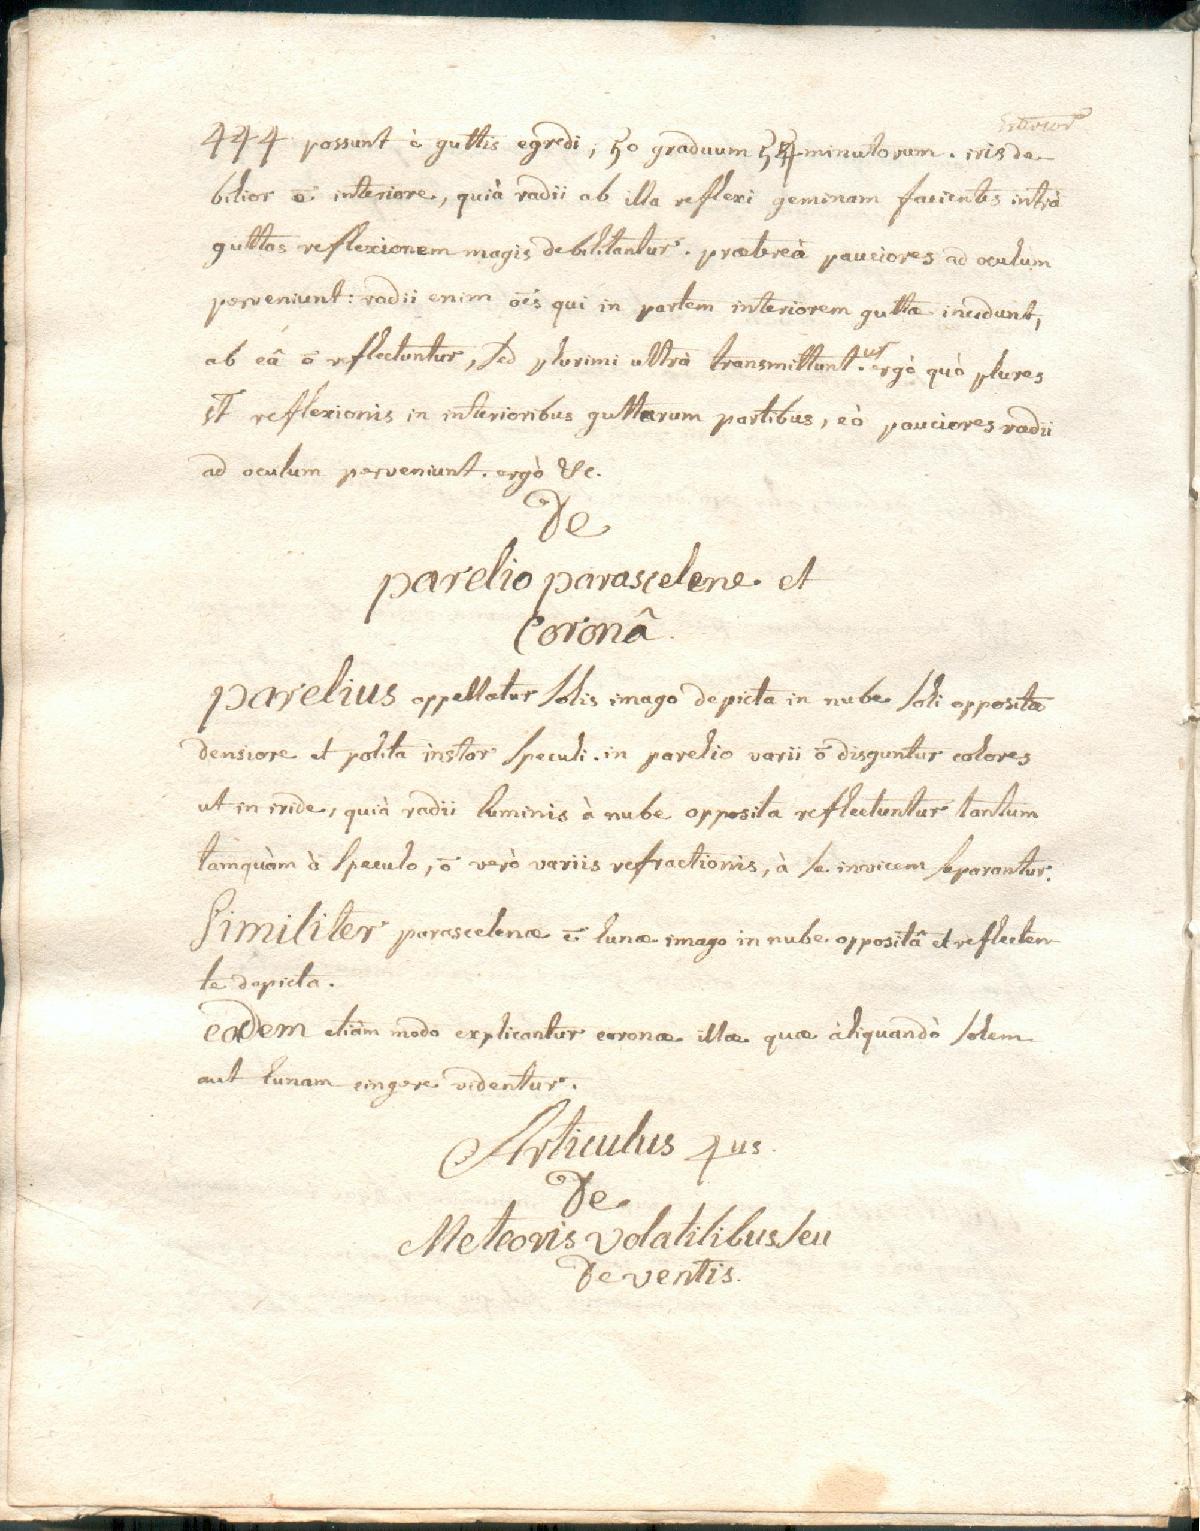 exterior
444 possunt è guttis egredi, 50 graduum 54 minutorum. iris de
bilior ē interiore, quià radii ab illa reflexi geminam facientes intrà
guttas reflexionem magis debilitantur. prætereà pauciores ad oculum
perveniunt: radii enim ōes qui in partem interiorem guttæ incidunt,
ab eâ ō reflectuntur, sed plurimi ultrà transmittunt.ur ergò quò plures
st reflexionis in interioribus guttarum partibus, eò pauciores radii
ad oculum perveniunt. ergò &c.
De
parelio parascelene et
Coronâ.
parelius appellatur solis imago depicta in nube soli opposita
densiore et polita instar speculi. in parelio varii ō disguntur colores
ut in iride, quià radii luminis à nube opposita reflectuntur tantum
tamquàm à speculo, ō verò variis refractionis, à se invicem separantur.
Similiter parascelenæ ē lunæ imago in nube oppositâ et reflecten
te depicta.
eodem etiàm modo explicantur coronæ illæ quæ àliquandò solem
aut lunam cingere videntur.
Articulus 4us.
De
Meteoris volatilibus seu
De ventis.